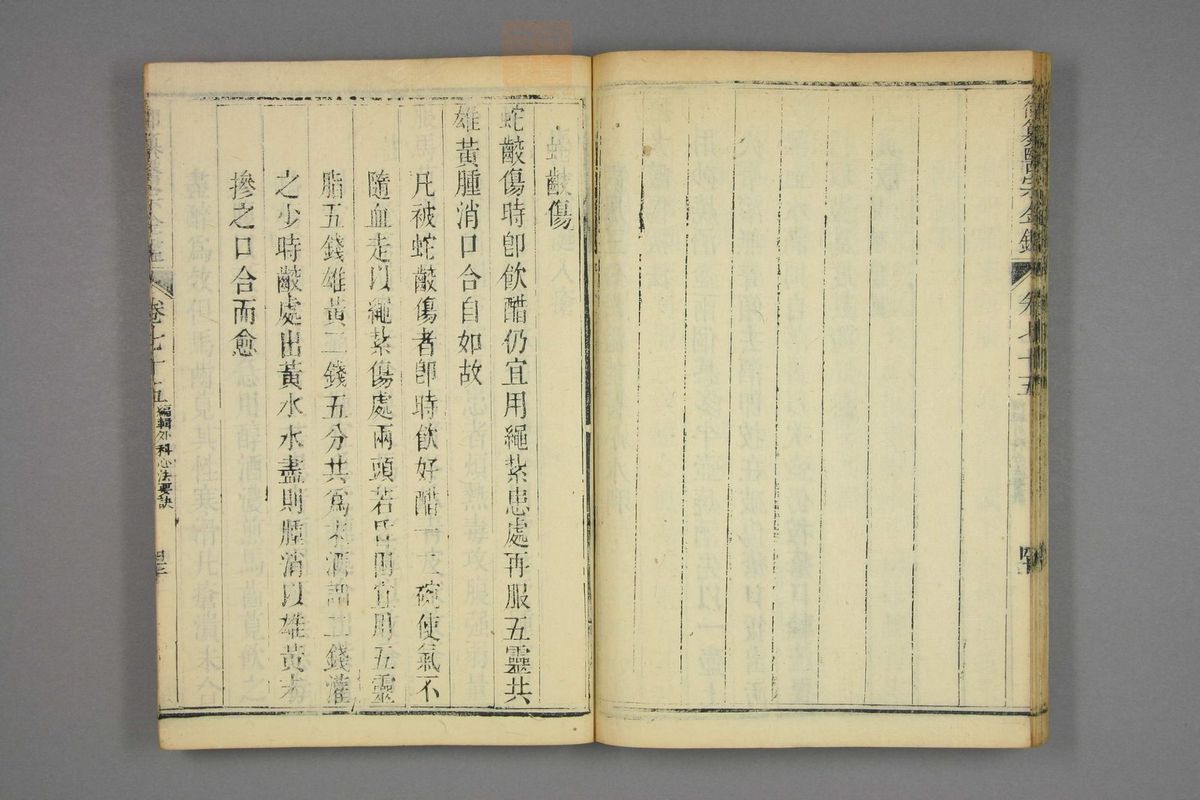 御纂醫宗金鑑 卷七十五
蛇齩傷
蛇齩傷時卽飲醋仍宜用繩紮患處再服五靈共
雄黃腫消口合自如故
凡被蛇齩傷者卽時飲好醋一二碗使氣不
隨血走以繩紮傷處兩頭若昏困宜服五靈
脂五錢雄黃二錢五分共爲末酒調二錢灌
之少時齩處出黃水水盡則腫消以雄黃末
摻之口合而愈
卷七十五 編輯外科心法要訣